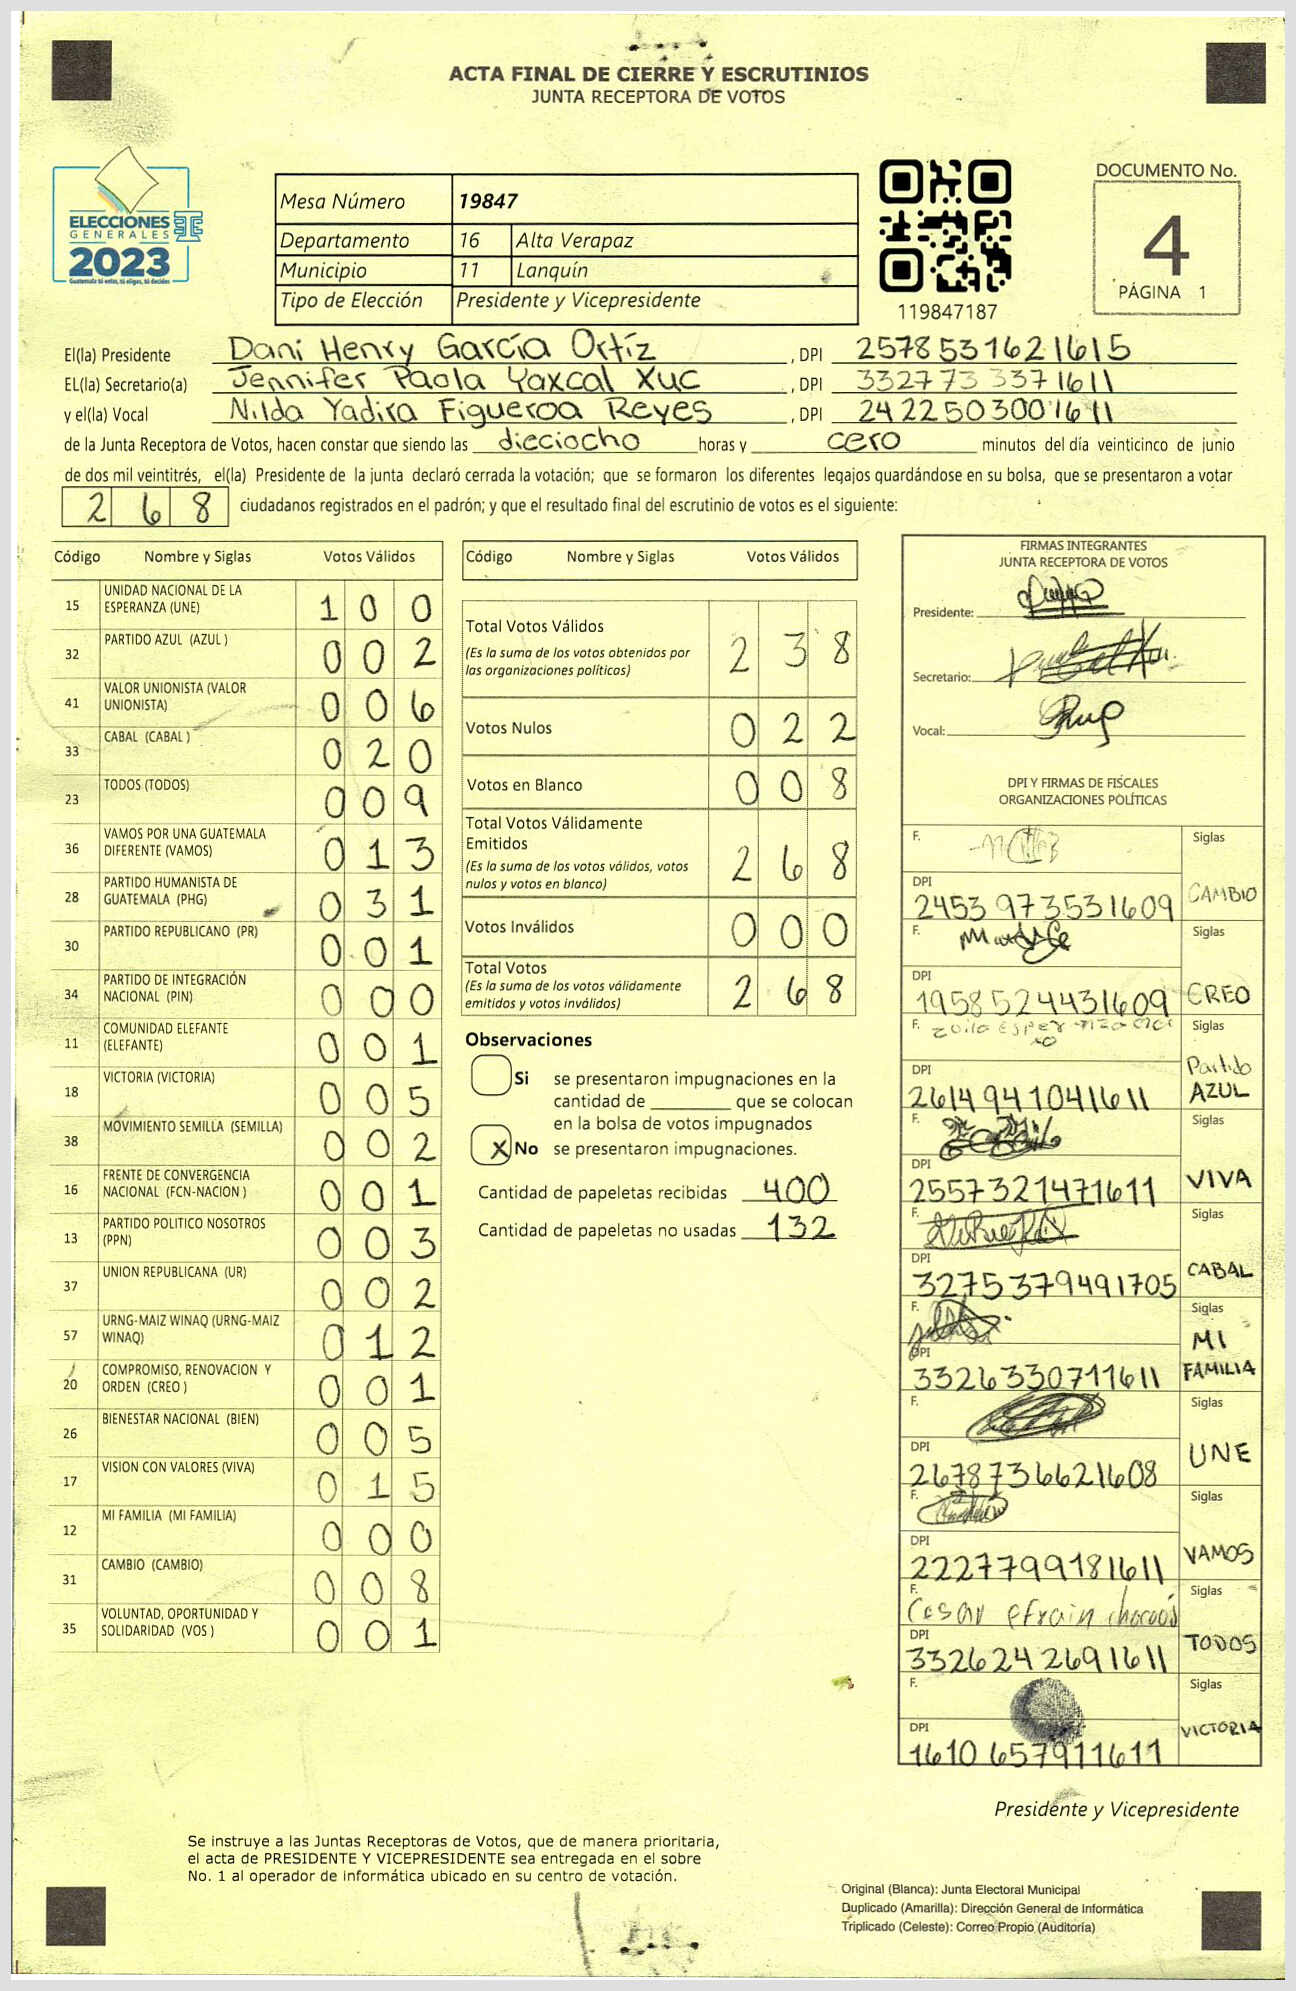 ACTA FINAL DE CIERRE Y ESCRUTINIOS
JUNTA RECEPTORA DE VOTOS
ELECCIONES
GENERALES
2023
Guatemala tú votas, tú eliges, tú decides
Mesa Número 19847
Departamento 16 Alta Verapaz
Municipio 11 Lanquín
Tipo de Elección Presidente y Vicepresidente
119847187
DOCUMENTO No.
4
PÁGINA 1
El(la) Presidente Dani Henry García Ortíz , DPI 2578531621615
EL(la) Secretario(a) Jennifer Paola Yaxcal Xuc , DPI 3327733371611
y el(la) Vocal Nilda Yadira Figueroa Reyes , DPI 2422503001611
de la Junta Receptora de Votos, hacen constar que siendo las dieciocho horas y cero minutos del día veinticinco de junio
de dos mil veintitrés, el(la) Presidente de la junta declaró cerrada la votación; que se formaron los diferentes legajos guardándose en su bolsa, que se presentaron a votar
268 ciudadanos registrados en el padrón; y que el resultado final del escrutinio de votos es el siguiente:
Código Nombre y Siglas Votos Válidos
15 UNIDAD NACIONAL DE LA ESPERANZA (UNE) 100
32 PARTIDO AZUL (AZUL ) 002
41 VALOR UNIONISTA (VALOR UNIONISTA) 006
33 CABAL (CABAL ) 020
23 TODOS (TODOS) 009
36 VAMOS POR UNA GUATEMALA DIFERENTE (VAMOS) 013
28 PARTIDO HUMANISTA DE GUATEMALA (PHG) 031
30 PARTIDO REPUBLICANO (PR) 001
34 PARTIDO DE INTEGRACIÓN NACIONAL (PIN) 000
11 COMUNIDAD ELEFANTE (ELEFANTE) 001
18 VICTORIA (VICTORIA) 005
38 MOVIMIENTO SEMILLA (SEMILLA) 002
16 FRENTE DE CONVERGENCIA NACIONAL (FCN-NACION ) 001
13 PARTIDO POLITICO NOSOTROS (PPN) 003
37 UNION REPUBLICANA (UR) 002
57 URNG-MAIZ WINAQ (URNG-MAIZ WINAQ) 012
20 COMPROMISO, RENOVACION Y ORDEN (CREO ) 001
26 BIENESTAR NACIONAL (BIEN) 005
17 VISION CON VALORES (VIVA) 015
12 MI FAMILIA (MI FAMILIA) 000
31 CAMBIO (CAMBIO) 008
35 VOLUNTAD, OPORTUNIDAD Y SOLIDARIDAD (VOS ) 001
Código Nombre y Siglas Votos Válidos
Total Votos Válidos 238
(Es la suma de los votos obtenidos por
las organizaciones políticas)
Votos Nulos 022
Votos en Blanco 008
Total Votos Válidamente
Emitidos 268
(Es la suma de los votos válidos, votos
nulos y votos en blanco)
Votos Inválidos 000
Total Votos 268
(Es la suma de los votos válidamente
emitidos y votos inválidos)
Observaciones
Si se presentaron impugnaciones en la
cantidad de ________ que se colocan
en la bolsa de votos impugnados
X No se presentaron impugnaciones.
Cantidad de papeletas recibidas 400
Cantidad de papeletas no usadas 132
FIRMAS INTEGRANTES
JUNTA RECEPTORA DE VOTOS
Presidente:
Secretario:
Vocal:
DPI Y FIRMAS DE FISCALES
ORGANIZACIONES POLÍTICAS
F. Siglas
DPI 2453973531609 CAMBIO
F. Siglas
DPI 1958524431609 CREO
F. Siglas
DPI 2614941041611 Partido AZUL
F. Siglas
DPI 2557321471611 VIVA
F. Siglas
DPI 3275379491705 CABAL
F. Siglas
DPI 3326330711611 MI FAMILIA
F. Siglas
DPI 2678736621608 UNE
F. Siglas
DPI 2227799181611 VAMOS
F. Cesar efrain Siglas
DPI 3326242691611 TODOS
F. Siglas
DPI 1610657911611 VICTORIA
Presidente y Vicepresidente
Se instruye a las Juntas Receptoras de Votos, que de manera prioritaria,
el acta de PRESIDENTE Y VICEPRESIDENTE sea entregada en el sobre
No. 1 al operador de informática ubicado en su centro de votación.
Original (Blanca): Junta Electoral Municipal
Duplicado (Amarilla): Dirección General de Informática
Triplicado (Celeste): Correo Propio (Auditoría)